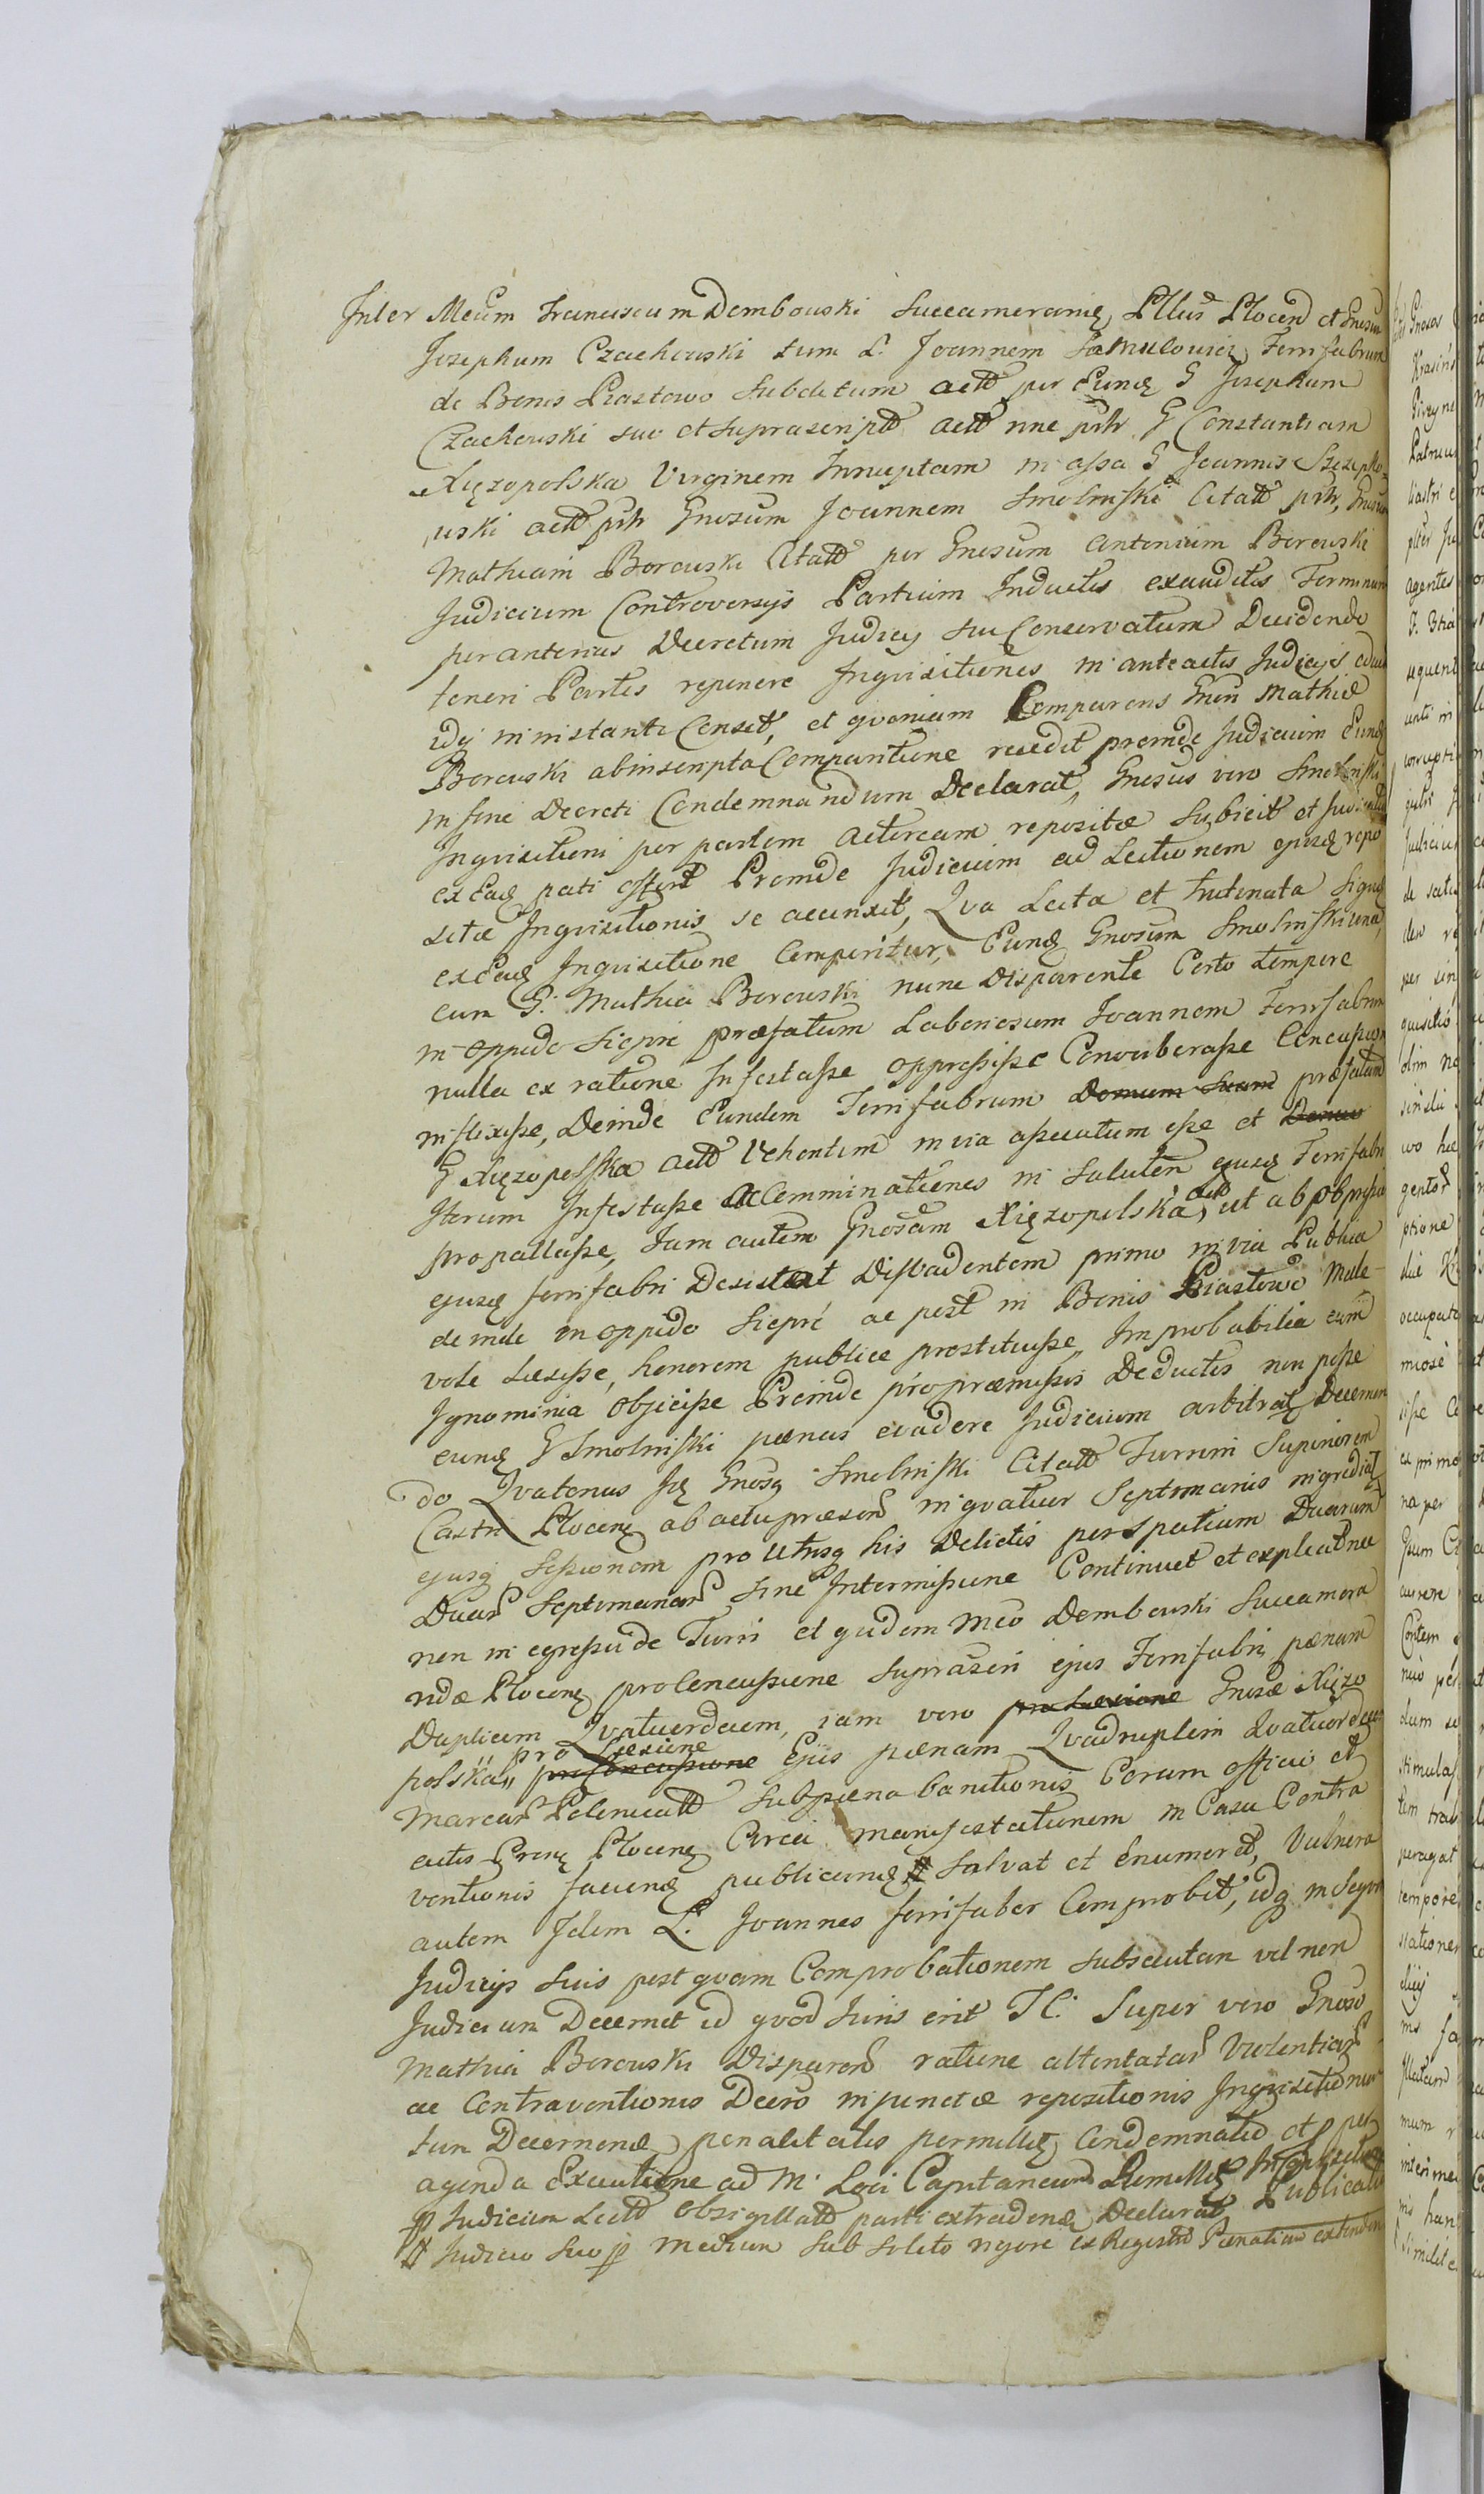 Inter Mcum Franciscum Dembowski Succamerarię Pllus Plocen et Gnosum
Josephum Czachowski tum L. Joannem Samulowicz Ferrifabrum
de Bonis Piastowo Subditum actt per Eundę G Josephum
Czachowski suo et suprascriptt actt nne prtr G Constantiam
Xięzopolska Virginem Innuptam in assa G Joannis Szczepko
wski actt prtr Gnosum Joannem Smolinski Citatt prtr, Gnosum
Mathiam Borowski Citatt per Gnosum Antonium Borowski
Judicium Controversijs Partium Inductis exauditis Terminum
per anterius Decretum Judicij sui Conservatum Decidendo
teneri Partes reponere Inquisitiones in anteactis Judicijs
idq in instanti Censet, et quoniam Comparens Gnen Mathiæ
Borowski ab inscripta Comparitione recedit proinde Judicium Eundę
in fine Decreti Condemnandum Declarat, Gnosus vero Smolinski
Inquisitioni per partem Actoream repositæ Subicit et Judicatū
ex Eadę pati offert Proinde Judicium ad Lectionem ejusdę repo
sitæ Inquisitionis se accinxit, Qva Lecta et trutinata siquid
ex Eadę Inquisitione Comperitur Eundę Gnosum Smolinski una,
cum G. Mathia Borowski nunc Disparente Certo tempore
in oppido Siepre præfatum Laboriosum Joannem Ferrifabrum
nulla ex ratione Infestasse oppressisse Converberasse Concussion
inflixisse, Deinde Eundem Ferrifabrum Domum Suam præfatam
G Xięzopolska actt Vehentem in via assecutum esse et Denuo
Iterum Infestasse ac Comminationes in Salutem ejusdę Ferrifabri
propallasse, Jam autem Gnosam Xięzopolska, actt ut ab oppressio
ejusdę ferrifabri Desisterat Dissvadentem primo in via Publica
deinde in oppido Siepre ac post in Bonis Piastowo Male
vole Læsisse, honorem publice prostituisse, Improbabilia cum
Ignominia objecisse Proinde pro præmissis Deductis non posse
eundę G Smolinski pænas evadere Judicium arbitratę Decernen
do Qvatenus Ję Gnosę Smolinski Citatt Turrim Superiorem
Castri Plocenę ab actu præsen in qvatuor Septimanis ingrediat
ejusq Sessionem pro Utrisq his Delictis per Spatium Duarum
Duar Septimanar sine Intermissione Continuet et expleat nec
non in egressu de Turri et quidem Mco Dembowski Succamera
ndæ Plocenę pro Concussione supraScri ejus Ferrifabri pænam
Duplicem Qvatuordecem, iam vero pro Læsione Gnosæ Xięzo
polska pro Læsione pro Concussione Ejus pænam Qvadruplem Qvatuordecē
Marcar Polonicatt Sub pæna banitionis Coram officio et
actis Præsę Plocenę Circa manifestationem in Casu Contra
ventionis faciendę publicandę # Salvat et Enumeret, Vulnera
autem Idem L. Joannes ferrifaber Comprobit, idq in Seqven
Judicijs Suis post qvam Comprobationem subsecutan vel non
Judicium Decernet id qvod Juris erit TC. Super vero Gnoso
Mathia Borowski Disparen ratione attentatar Violentiar
ac Contraventionis Decro injunctæ repositionis Inqvisitionum
tum Decernendę penalitatis permittitę Condemnatio et p per
agenda Executione ad M. Loci Capitaneum Remittitę Inqvisitiones
p Judicium Lectt obsigillatt parti extradendę Declarat Publicatt
# Judicio suo p Medium Sub Solito rigore ex Registro Pænalium extenden